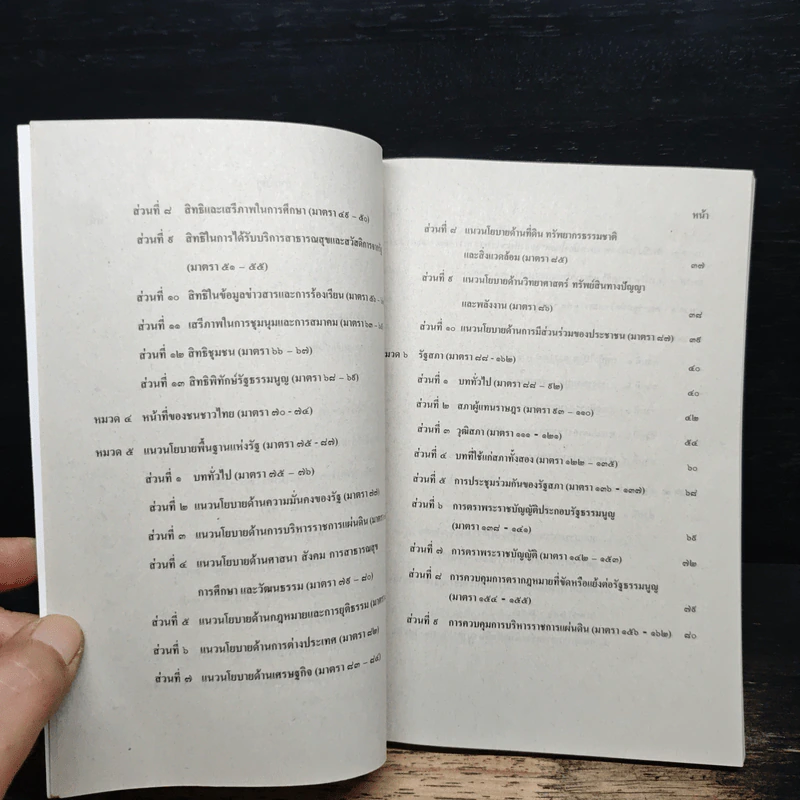 ส่วนที่ ๘ สิทธิและเสรีภาพในการศึกษา (มาตรา ๔๙ – ๕๐)
ส่วนที่ ๙ สิทธิในการได้รับบริการสาธารณสุขและสวัสดิการจากรัฐ
(มาตรา ๕๑ – ๕๕)
ส่วนที่ ๑๐ สิทธิในข้อมูลข่าวสารและการร้องเรียน (มาตรา ๕๖ –
ส่วนที่ ๑๑ เสรีภาพในการชุมนุมและการสมาคม (มาตรา ๖๓ –
ส่วนที่ ๑๒ สิทธิชุมชน (มาตรา ๖๖ – ๖๗)
ส่วนที่ ๑๓ สิทธิพิทักษ์รัฐธรรมนูญ (มาตรา ๖๘ – ๖๙)
หมวด ๔ หน้าที่ของชนชาวไทย (มาตรา ๗๐ - ๗๔)
หมวด ๕ แนวนโยบายพื้นฐานแห่งรัฐ (มาตรา ๗๕ - ๘๗)
ส่วนที่ ๑ บททั่วไป (มาตรา ๗๕ – ๗๖)
ส่วนที่ ๒ แนวนโยบายด้านความมั่นคงของรัฐ (มาตรา ๗๗)
ส่วนที่ ๓ แนวนโยบายด้านการบริหารราชการแผ่นดิน (มาตรา
ส่วนที่ ๔ แนวนโยบายด้านศาสนา สังคม การสาธารณสุข
การศึกษา และวัฒนธรรม (มาตรา ๗๙ – ๘๐)
ส่วนที่ ๕ แนวนโยบายด้านกฎหมายและการยุติธรรม (มาตรา
ส่วนที่ ๖ แนวนโยบายด้านการต่างประเทศ (มาตรา ๘๒)
ส่วนที่ ๗ แนวนโยบายด้านเศรษฐกิจ (มาตรา ๘๓ – ๘๔)
หน้า
ส่วนที่ ๘ แนวนโยบายด้านที่ดิน ทรัพยากรธรรมชาติ
และสิ่งแวดล้อม (มาตรา ๘๕) ๓๗
ส่วนที่ ๙ แนวนโยบายด้านวิทยาศาสตร์ ทรัพย์สินทางปัญญา
และพลังงาน (มาตรา ๘๖) ๓๘
ส่วนที่ ๑๐ แนวนโยบายด้านการมีส่วนร่วมของประชาชน (มาตรา ๘๗) ๓๙
หมวด ๖ รัฐสภา (มาตรา ๘๘ - ๑๖๒) ๔๐
ส่วนที่ ๑ บททั่วไป (มาตรา ๘๘ – ๙๒) ๔๐
ส่วนที่ ๒ สภาผู้แทนราษฎร (มาตรา ๙๓ – ๑๑๐) ๔๒
ส่วนที่ ๓ วุฒิสภา (มาตรา ๑๑๑ – ๑๒๑) ๕๔
ส่วนที่ ๔ บทที่ใช้แก่สภาทั้งสอง (มาตรา ๑๒๒ – ๑๓๕) ๖๐
ส่วนที่ ๕ การประชุมร่วมกันของรัฐสภา (มาตรา ๑๓๖ – ๑๓๗) ๖๘
ส่วนที่ ๖ การตราพระราชบัญญัติประกอบรัฐธรรมนูญ
(มาตรา ๑๓๘ – ๑๔๑) ๖๙
ส่วนที่ ๗ การตราพระราชบัญญัติ (มาตรา ๑๔๒ – ๑๕๓) ๗๒
ส่วนที่ ๘ การควบคุมการตรากฎหมายที่ขัดหรือแย้งต่อรัฐธรรมนูญ
(มาตรา ๑๕๔ – ๑๕๕) ๗๙
ส่วนที่ ๙ การควบคุมการบริหารราชการแผ่นดิน (มาตรา ๑๕๖ – ๑๖๒) ๘๐